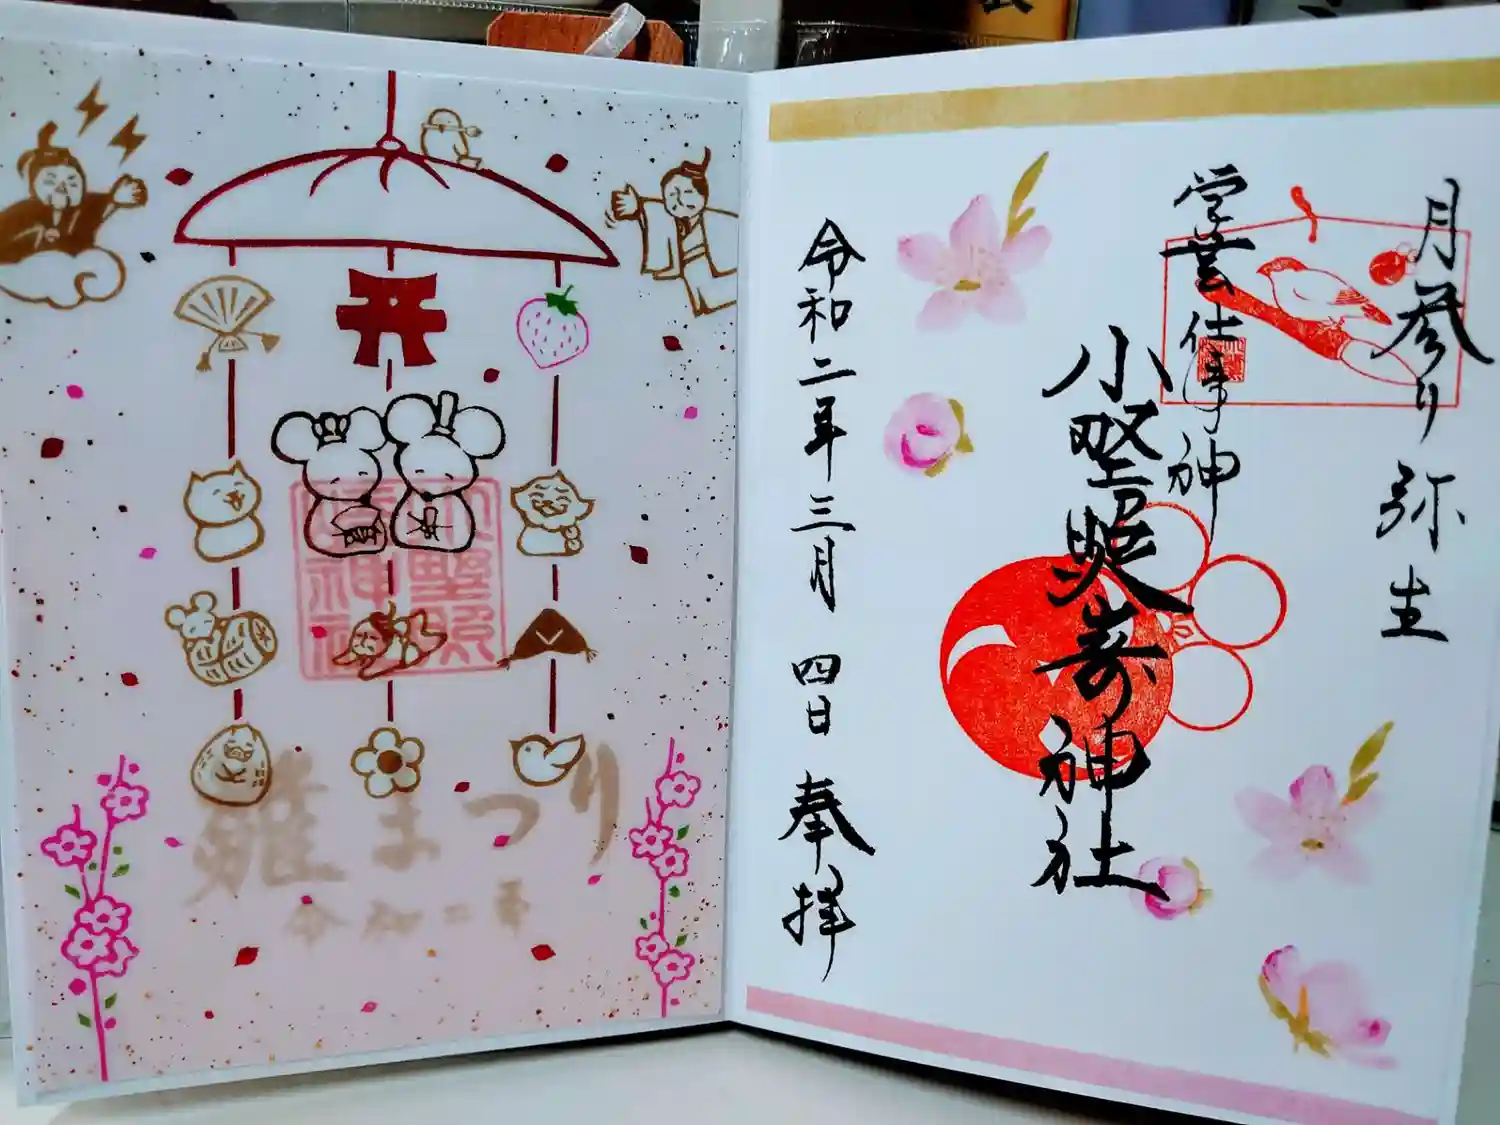 月参り 弥生
学芸 仕事神
小野照崎神社
令和二年三月四日 奉拝
雛まつり
令和二年
小野照
崎神社